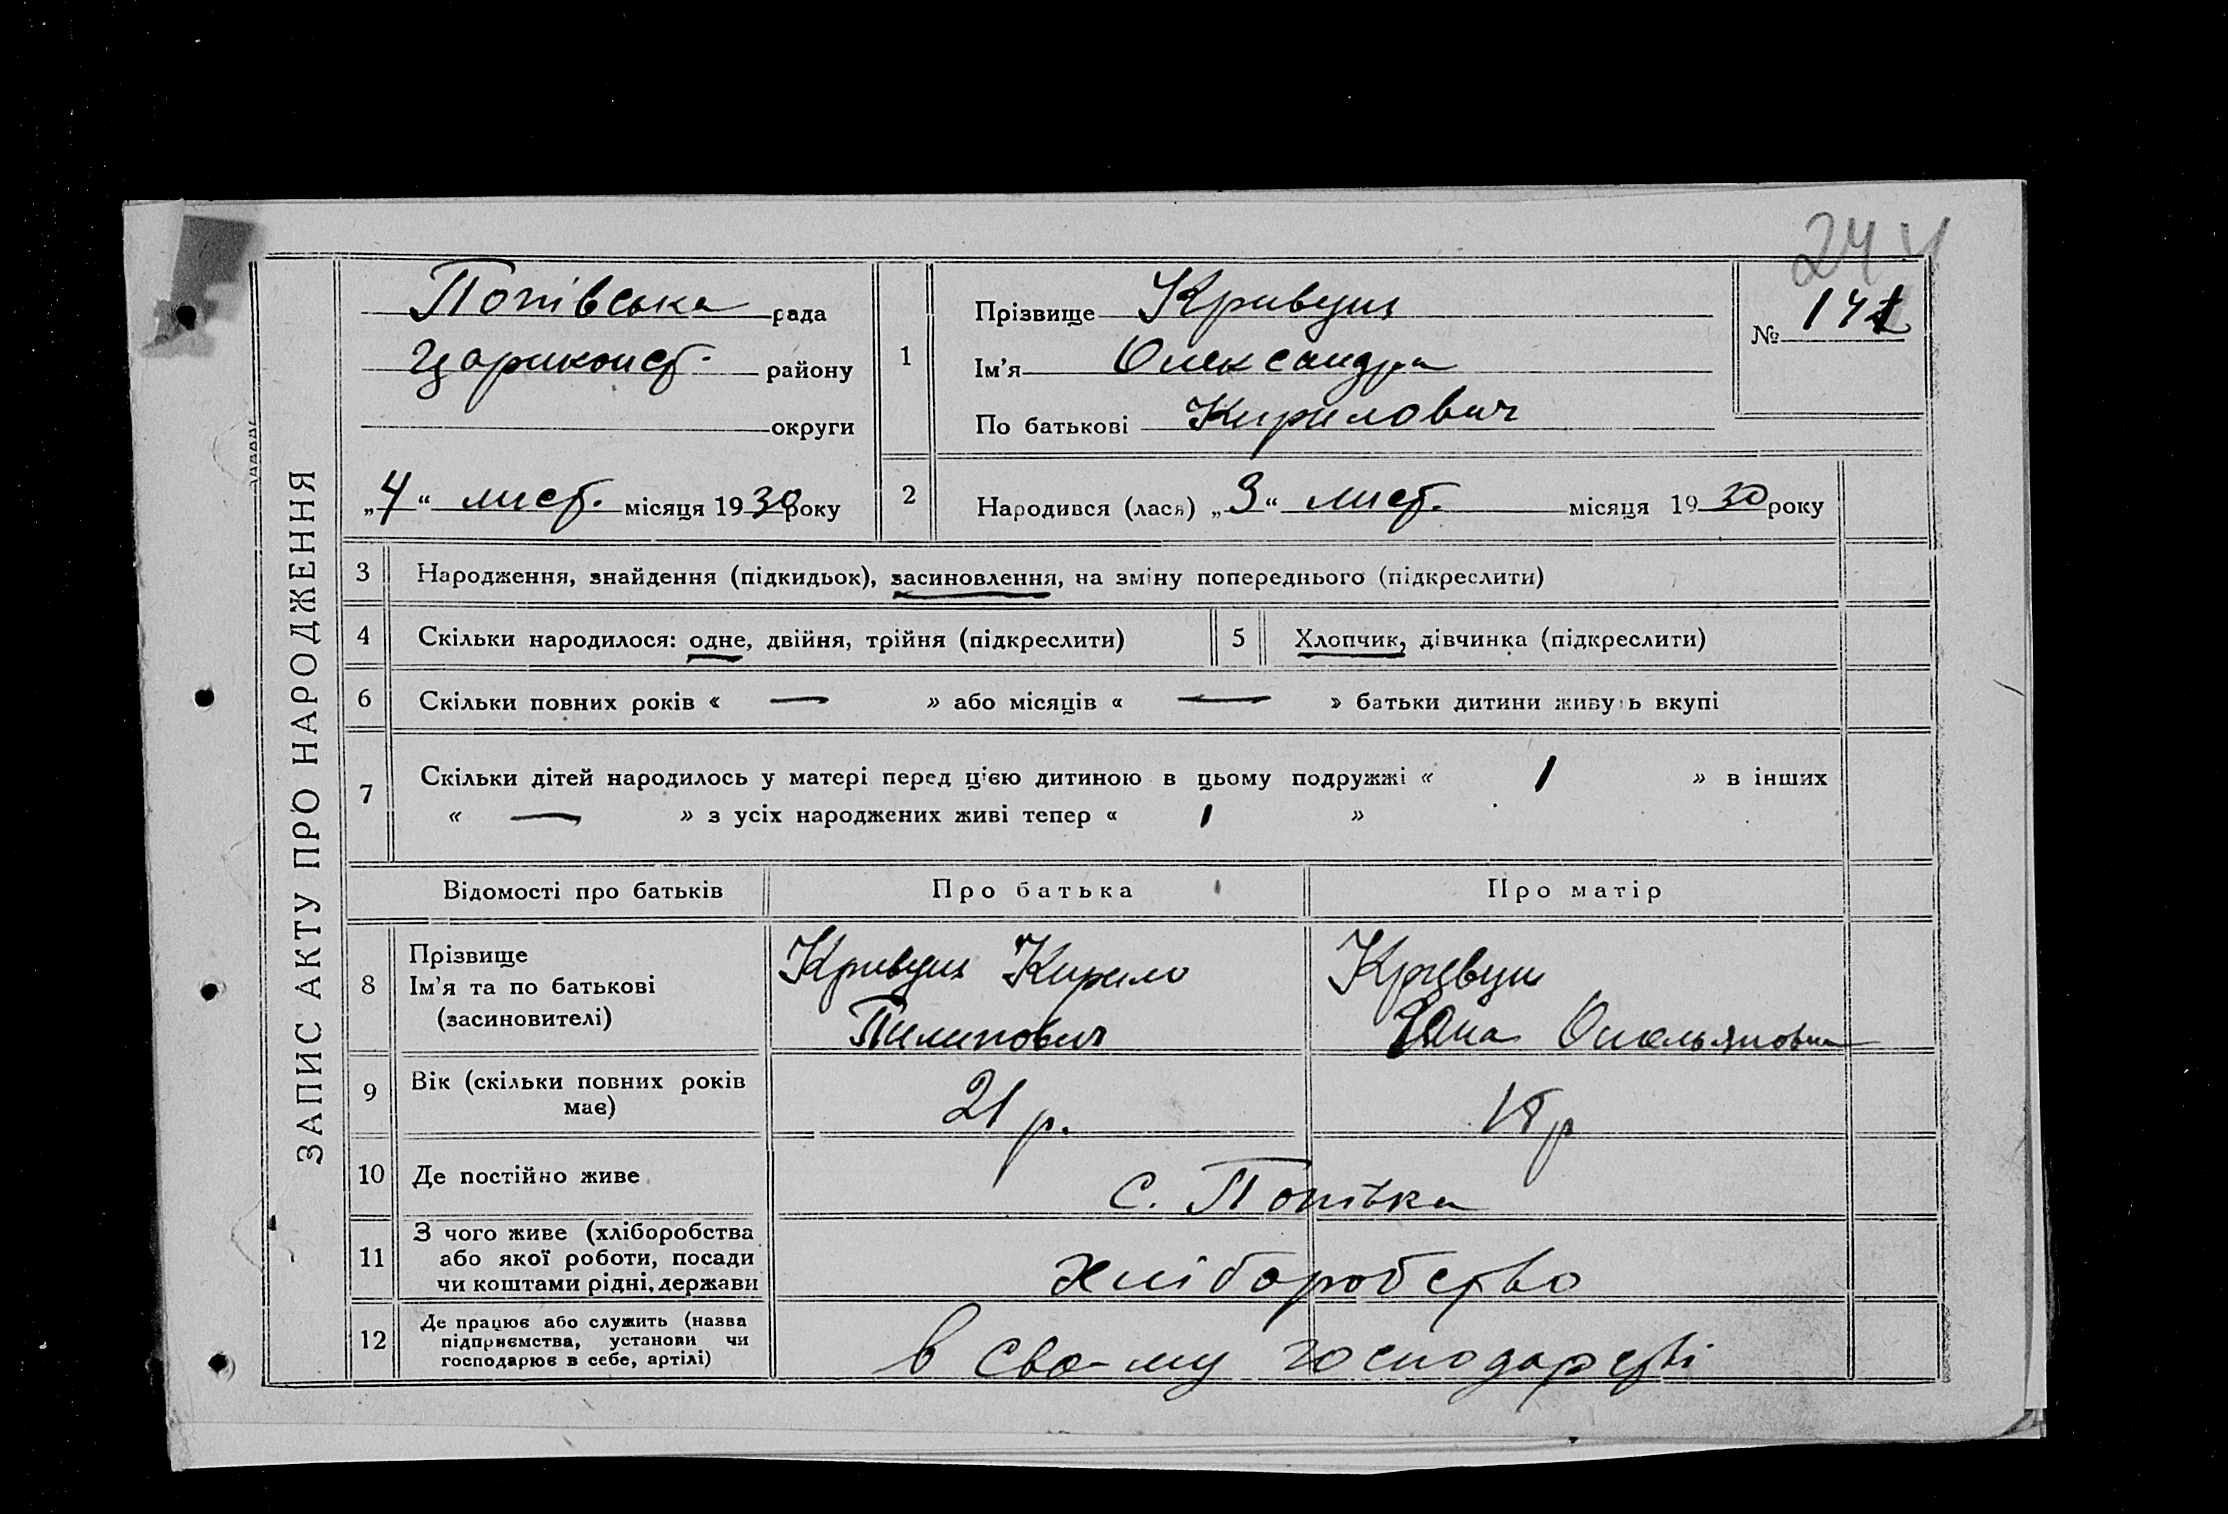 ЗАПИС АКТУ ПРО НАРОДЖЕННЯ
244
Попівська рада
Цариконст. району
округи
„4“ лист. місяця 1930 року
1
Прізвище Кривуц
Ім'я Олександра
По батькові Кирилович
№ 141
2
Народився (лася) „3“ лист. місяця 1930 року
3 Народження, знайдення (підкидьок), засиновлення, на зміну попереднього (підкреслити)
4 Скільки народилося: одне, двійня, трійня (підкреслити)
5 Хлопчик, дівчинка (підкреслити)
6 Скільки повних років « — » або місяців « — » батьки дитини живуть вкупі
7 Скільки дітей народилось у матері перед цією дитиною в цьому подружжі « 1 » в інших
« — » з усіх народжених живі тепер « 1 »
Відомості про батьків Про батька Про матір
8 Прізвище
Ім'я та по батькові
(засиновителі)
Кривуц Кирило
Пилипович
Кривуц
Омельяновна
9 Вік (скільки повних років
має)
21 р.
р
10 Де постійно живе
с. Попівка
11 З чого живе (хліборобства
або якої роботи, посади
чи коштами рідні, держави
хліборобство
12 Де працює або служить (назва
підприємства, установи чи
господарює в себе, артілі)
в сво-му господарстві